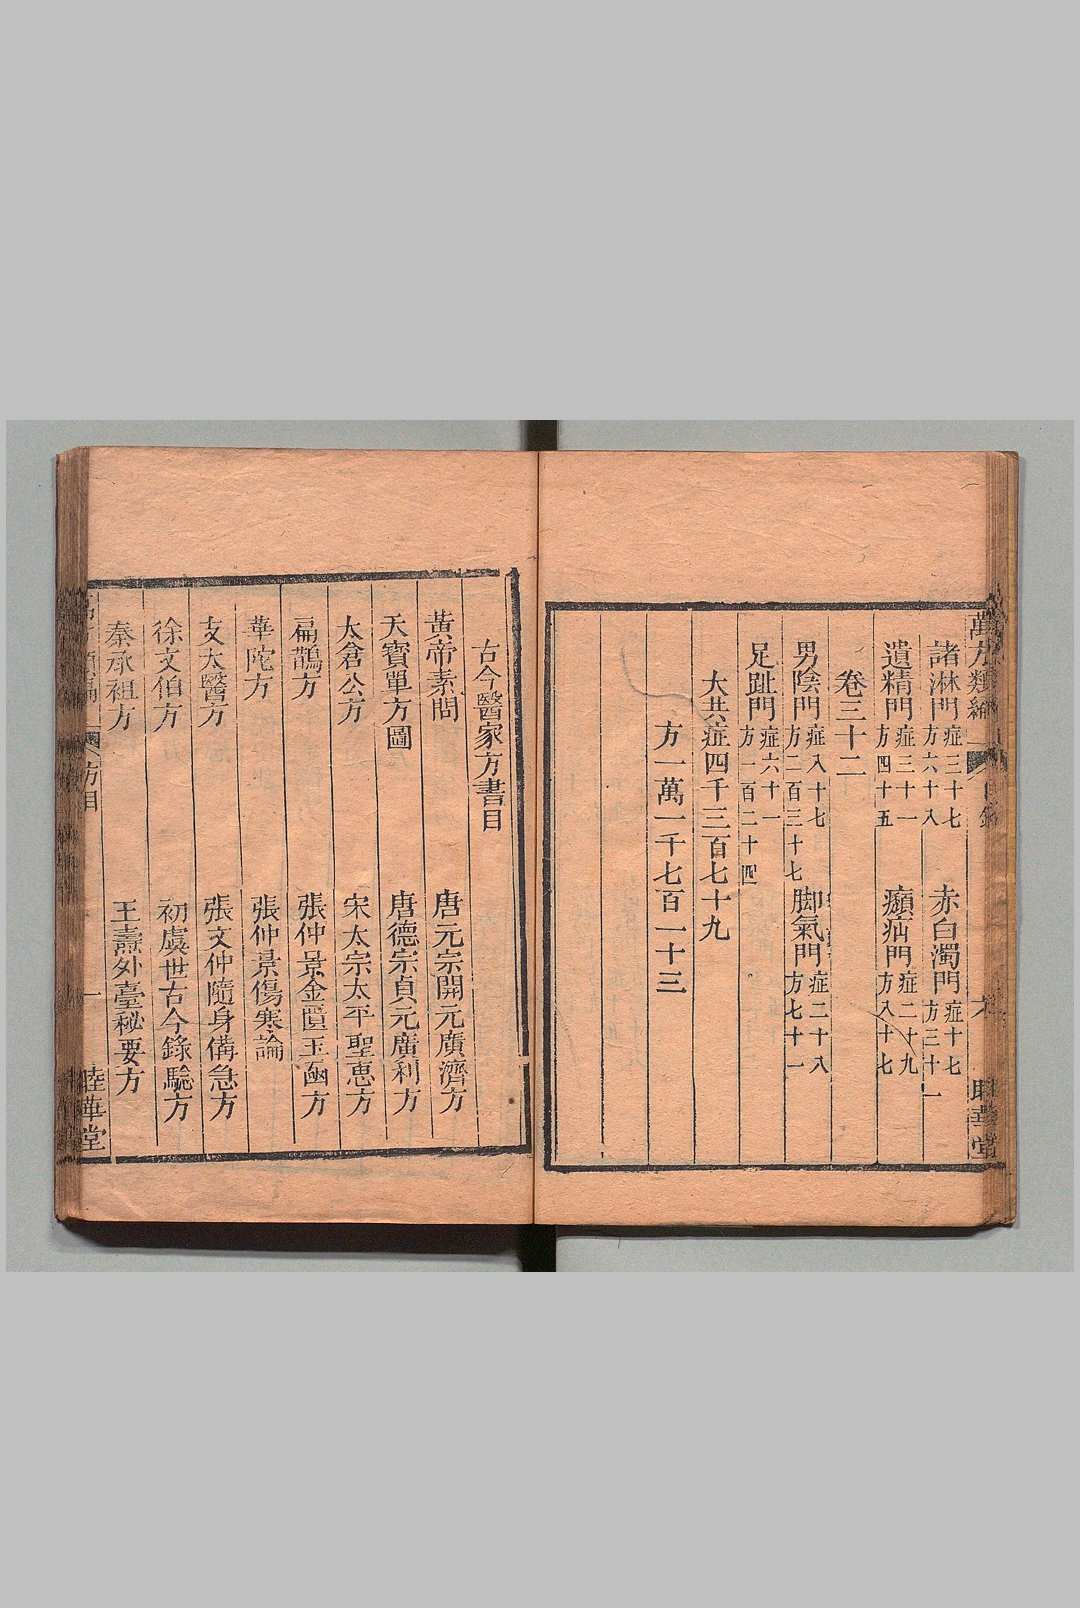 萬方類編
諸淋門 症三十七 方六十八 赤白濁門 症十七 方三十一
遺精門 症三十一 方四十五 癩疝門 症二十九 方八十七
卷三十二
男陰門 症八十七 方二百三十七 脚氣門 症二十八 方七十一
足趾門 症六十一 方一百二十四
大共症四千三百七十九
方一萬一千七百一十三
古今醫家方書目
黃帝素問 唐元宗開元廣濟方
天寶單方圖 唐德宗貞元廣利方
太倉公方 宋太宗太平聖惠方
扁鵲方 張仲景金匱玉函方
華陀方 張仲景傷寒論
支太醫方 張文仲隨身備急方
徐文伯方 初虞世古今錄驗方
秦承祖方 王燾外臺秘要方
方目 一 睦華堂